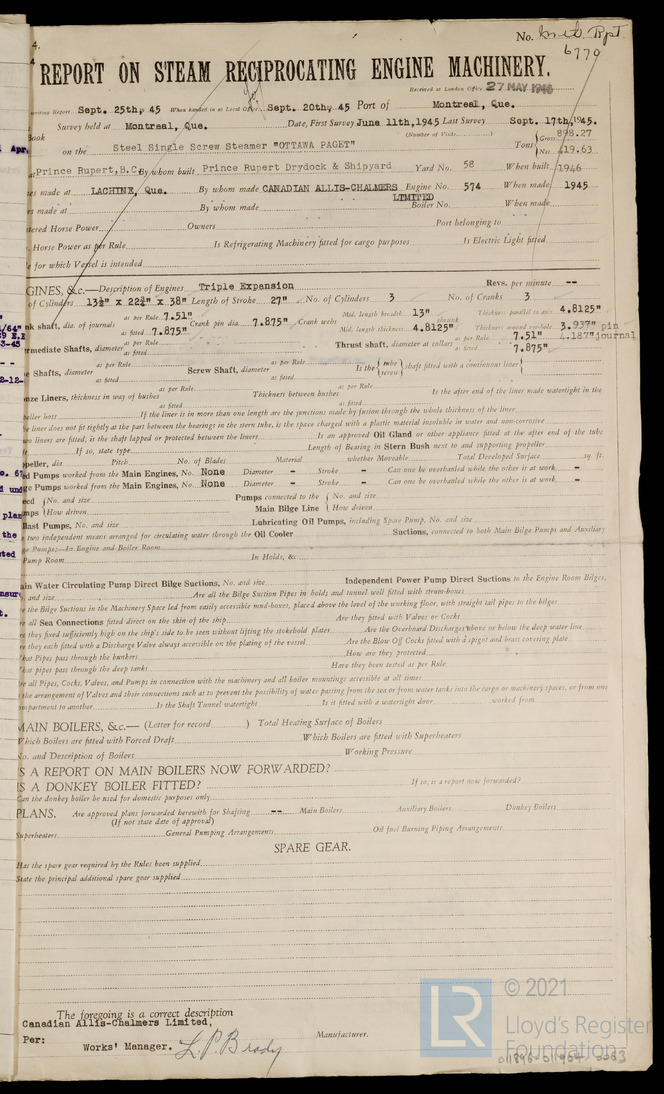 No. 
6770
4.
REPORT ON STEAM RECIPROCATING ENGINE MACHINERY.
Received at London Office 27 MAY 1946
Report Sept. 25th, 45 When handed in at Local Office Sept. 20th, 45 Port of Montreal, Que.
Survey held at Montreal, Que. Date, First Survey June 11th, 1945 Last Survey Sept. 17th, 1945.
Book (Number of Visits)
on the Steel Single Screw Steamer "OTTAWA PAGET" Tons Gross 898.27
Net 419.63
at Prince Rupert, B.C. By whom built Prince Rupert Drydock & Shipyard Yard No. 58 When built 1946
es made at LACHINE, Que. By whom made CANADIAN ALLIS-CHALMERS LIMITED Engine No. 574 When made 1945
rs made at By whom made Boiler No. When made
tered Horse Power Owners Port belonging to
Horse Power as per Rule Is Refrigerating Machinery fitted for cargo purposes Is Electric Light fitted
e for which Vessel is intended
GINES, &c.—Description of Engines Triple Expansion Revs. per minute --
of Cylinders 13½" x 22¾" x 38" Length of Stroke 27" No. of Cylinders 3 No. of Cranks 3
nk shaft, dia. of journals as per Rule 7.51" as fitted 7.875" Crank pin dia. 7.875" Crank webs Mid. length breadth 13" Mid. length thickness 4.8125" shrunk Thickness parallel to axis 4.8125" Thickness around eyehole 3.937" pin
4.187" journal
ermediate Shafts, diameter as per Rule as fitted Thrust shaft, diameter at collars as per Rule 7.51" as fitted 7.875"
e Shafts, diameter as per Rule as fitted Screw Shaft, diameter as per Rule as fitted Is the {tube screw} shaft fitted with a continuous liner
nze Liners, thickness in way of bushes as per Rule as fitted Thickness between bushes as per Rule as fitted Is the after end of the liner made watertight in the
peller boss If the liner is in more than one length are the junctions made by fusion through the whole thickness of the liner
e liner does not fit tightly at the part between the bearings in the stern tube, is the space charged with a plastic material insoluble in water and non-corrosive
wo liners are fitted, is the shaft lapped or protected between the liners Is an approved Oil Gland or other appliance fitted at the after end of the tube
If so, state type Length of Bearing in Stern Bush next to and supporting propeller
opeller, dia Pitch No. of Blades Material whether Moveable Total Developed Surface sq. ft.
ed Pumps worked from the Main Engines, No. None Diameter - Stroke - Can one be overhauled while the other is at work -
ge Pumps worked from the Main Engines, No. None Diameter - Stroke - Can one be overhauled while the other is at work -
eed {No. and size Pumps connected to the {No. and size
mps {How driven Main Bilge Line {How driven
llast Pumps, No. and size Lubricating Oil Pumps, including Spare Pump, No. and size
e two independent means arranged for circulating water through the Oil Cooler Suctions, connected to both Main Bilge Pumps and Auxiliary
ge Pumps:—In Engine and Boiler Room
Pump Room In Holds, &c.
ain Water Circulating Pump Direct Bilge Suctions, No. and size Independent Power Pump Direct Suctions to the Engine Room Bilges,
. and size Are all the Bilge Suction Pipes in holds and tunnel well fitted with strum-boxes
re the Bilge Suctions in the Machinery Space led from easily accessible mud-boxes, placed above the level of the working floor, with straight tail pipes to the bilges
re all Sea Connections fitted direct on the skin of the ship Are they fitted with Valves or Cocks
re they fixed sufficiently high on the ship's side to be seen without lifting the stokehold plates Are the Overboard Discharges above or below the deep water line
re they each fitted with a Discharge Valve always accessible on the plating of the vessel Are the Blow Off Cocks fitted with a spigot and brass covering plate
hat Pipes pass through the bunkers How are they protected
hat pipes pass through the deep tanks Have they been tested as per Rule
re all Pipes, Cocks, Valves, and Pumps in connection with the machinery and all boiler mountings accessible at all times
the arrangement of Valves and their connections such as to prevent the possibility of water passing from the sea or from water tanks into the cargo or machinery spaces, or from one
ompartment to another Is the Shaft Tunnel watertight Is it fitted with a watertight door worked from
MAIN BOILERS, &c.— (Letter for record ) Total Heating Surface of Boilers
Which Boilers are fitted with Forced Draft Which Boilers are fitted with Superheaters
No. and Description of Boilers Working Pressure
IS A REPORT ON MAIN BOILERS NOW FORWARDED?
IS A DONKEY BOILER FITTED? If so, is a report now forwarded?
Can the donkey boiler be used for domestic purposes only
PLANS. Are approved plans forwarded herewith for Shafting -- Main Boilers Auxiliary Boilers Donkey Boilers
(If not state date of approval)
Superheaters General Pumping Arrangements Oil fuel Burning Piping Arrangements
SPARE GEAR.
Has the spare gear required by the Rules been supplied
State the principal additional spare gear supplied
The foregoing is a correct description
Canadian Allis-Chalmers Limited,
Per: Works' Manager. L.P. Brady Manufacturer.
LR © 2021
Lloyd's Register
Foundation